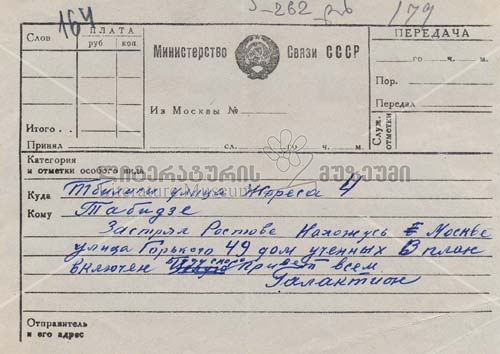 164
Э-262_рб
179
Слов
ПЛАТА
руб
коп.
Итого
Принял
Министерство Связи СССР
Из Москвы №
сл. го ч. м.
ПЕРЕДАЧА
го ч. м.
Пор.
Передал
Служ. отметки
Категория
и отметки особого вида
ლიტერატურის მუზეუმი
Literature Museum
Куда Тбилиси улица Жореса 4
Кому Табидзе
Застрял Ростове Нахожусь Москве
улица Горького 49 дом ученных В план
включен буду скоро Привет всем
Галактион
Отправитель
и его адрес